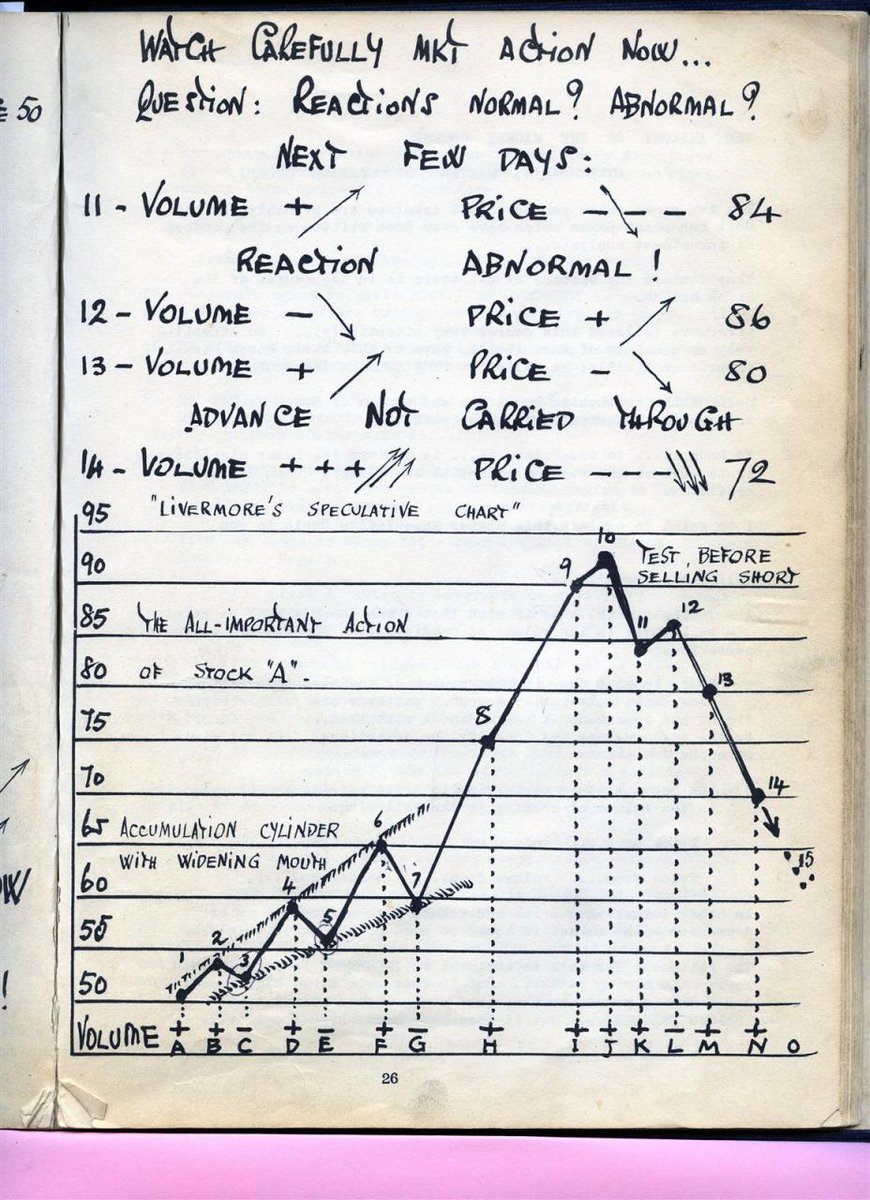 WATCH CAREFULLY MKT ACTION NOW...
QUESTION: REACTIONS NORMAL? ABNORMAL?
50
NEXT FEW DAYS:
11 - VOLUME + PRICE - - - 84
REACTION ABNORMAL!
12 - VOLUME - PRICE + 86
13 - VOLUME + PRICE 80
ADVANCE NOT CARRIED THROUGH
14 - VOLUME + + + PRICE - - - 72
95 "LIVERMORE'S SPECULATIVE CHART"
10
90 9 TEST, BEFORE
SELLING SHORT
85 THE ALL-IMPORTANT ACTION 11 12
80 OF STOCK "A". 13
75 8
70 14
65 ACCUMULATION CYLINDER 6
WITH WIDENING MOUTH 15
60 4 7
55 2 5
50 3
VOLUME + + - + - + - + + + + - + +
A B C D E F G H I J K L M N O
26